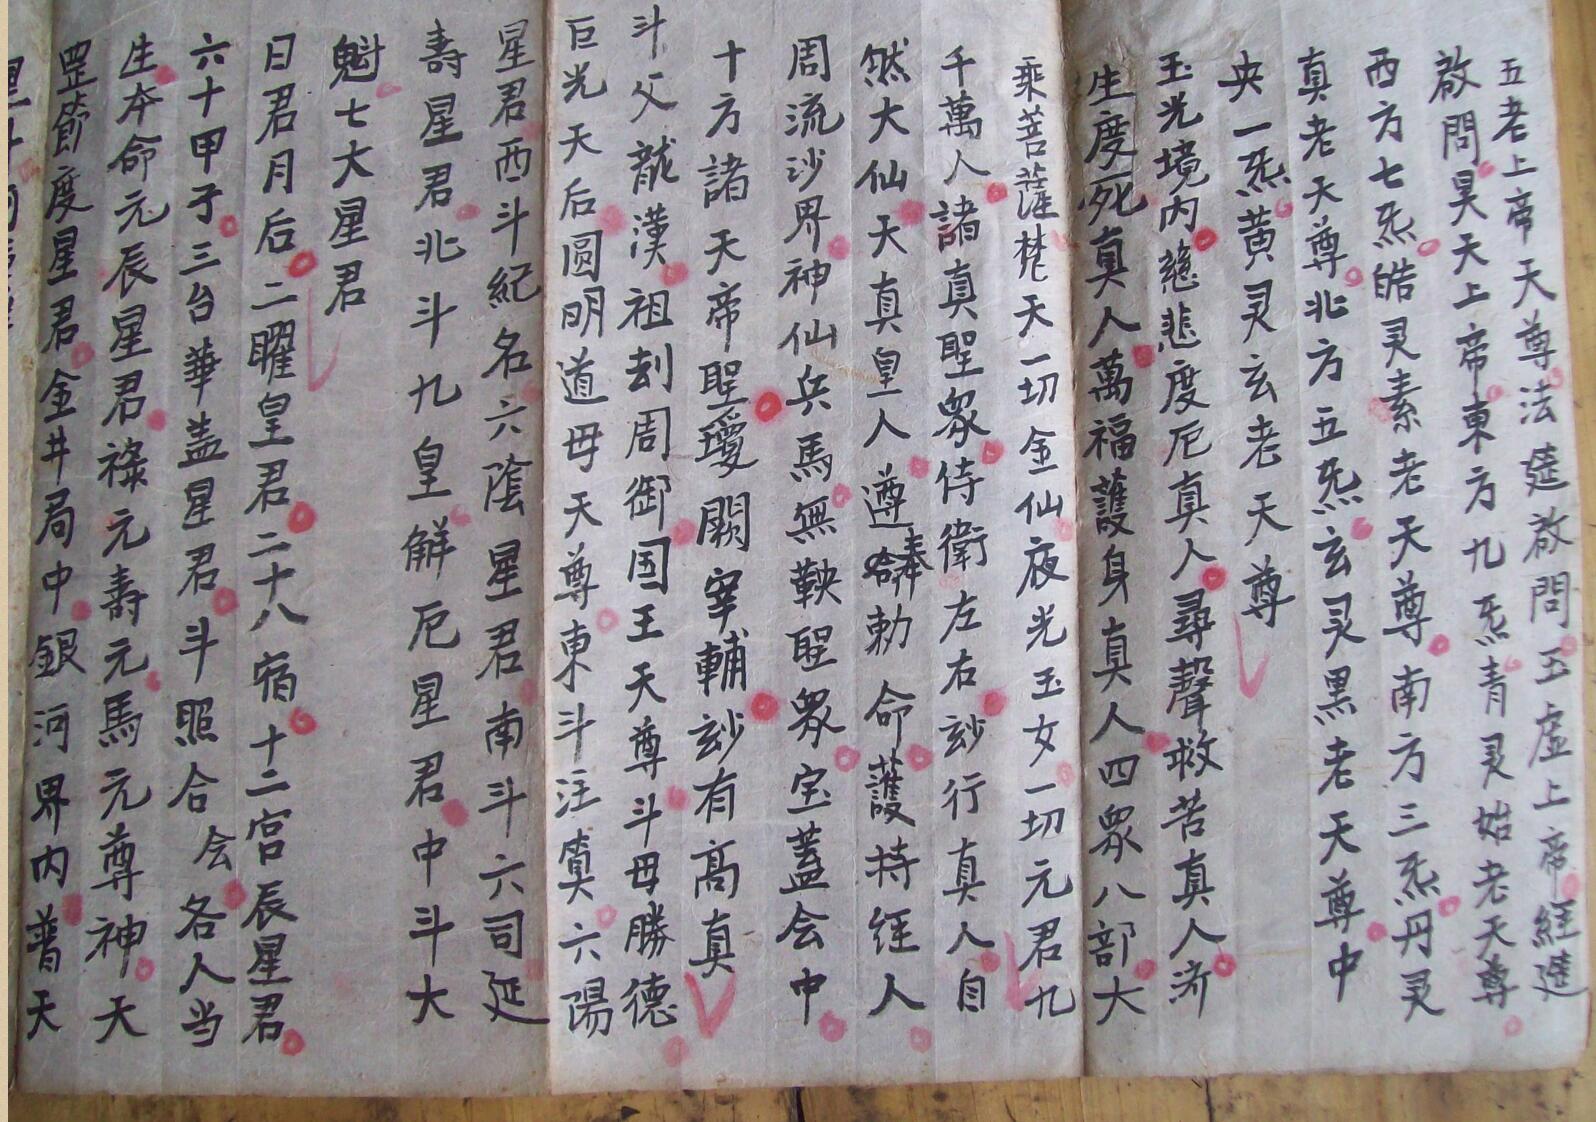 五老上帝天尊法筵啟問五虛上帝經筵
啟問昊天上帝東方九炁青灵始老天尊
西方七炁皓灵素老天尊南方三炁丹灵
真老天尊北方五炁玄灵黑老天尊中
央一炁黄灵玄老天尊
玉光境内慈悲度厄真人尋聲救苦真人济
生度死真人萬福護身真人四眾八部大
乘菩薩梵天一切金仙夜光玉女一切元君九
千萬人諸真聖眾侍衛左右玅行真人自
然大仙天真皇人遵奉勅命護持経人
周流沙界神仙兵馬無鞅聖眾宝蓋会中
十方諸天帝聖瓊闕宰輔玅有高真
斗父龍漢祖刦周御国王天尊斗母勝德
巨光天后圆明道母天尊東斗注筭六陽
星君西斗紀名六陰星君南斗六司延
壽星君北斗九皇解厄星君中斗大
魁七大星君
日君月后二曜皇君二十八宿十二宫辰星君
六十甲子三台華盖星君斗照合会各人当
生本命元辰星君禄元壽元馬元尊神天
罡節度星君金井局中銀河界内普天